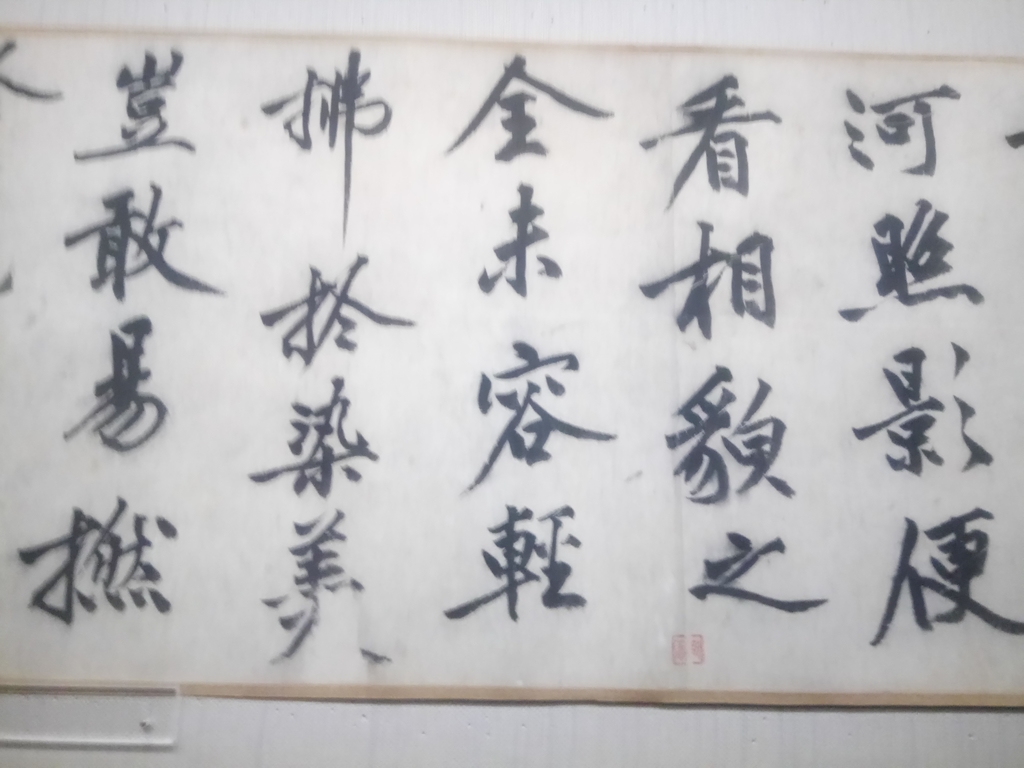 河照影便
看相貌之
全未容輕
拂於染羙
豈敢易撚